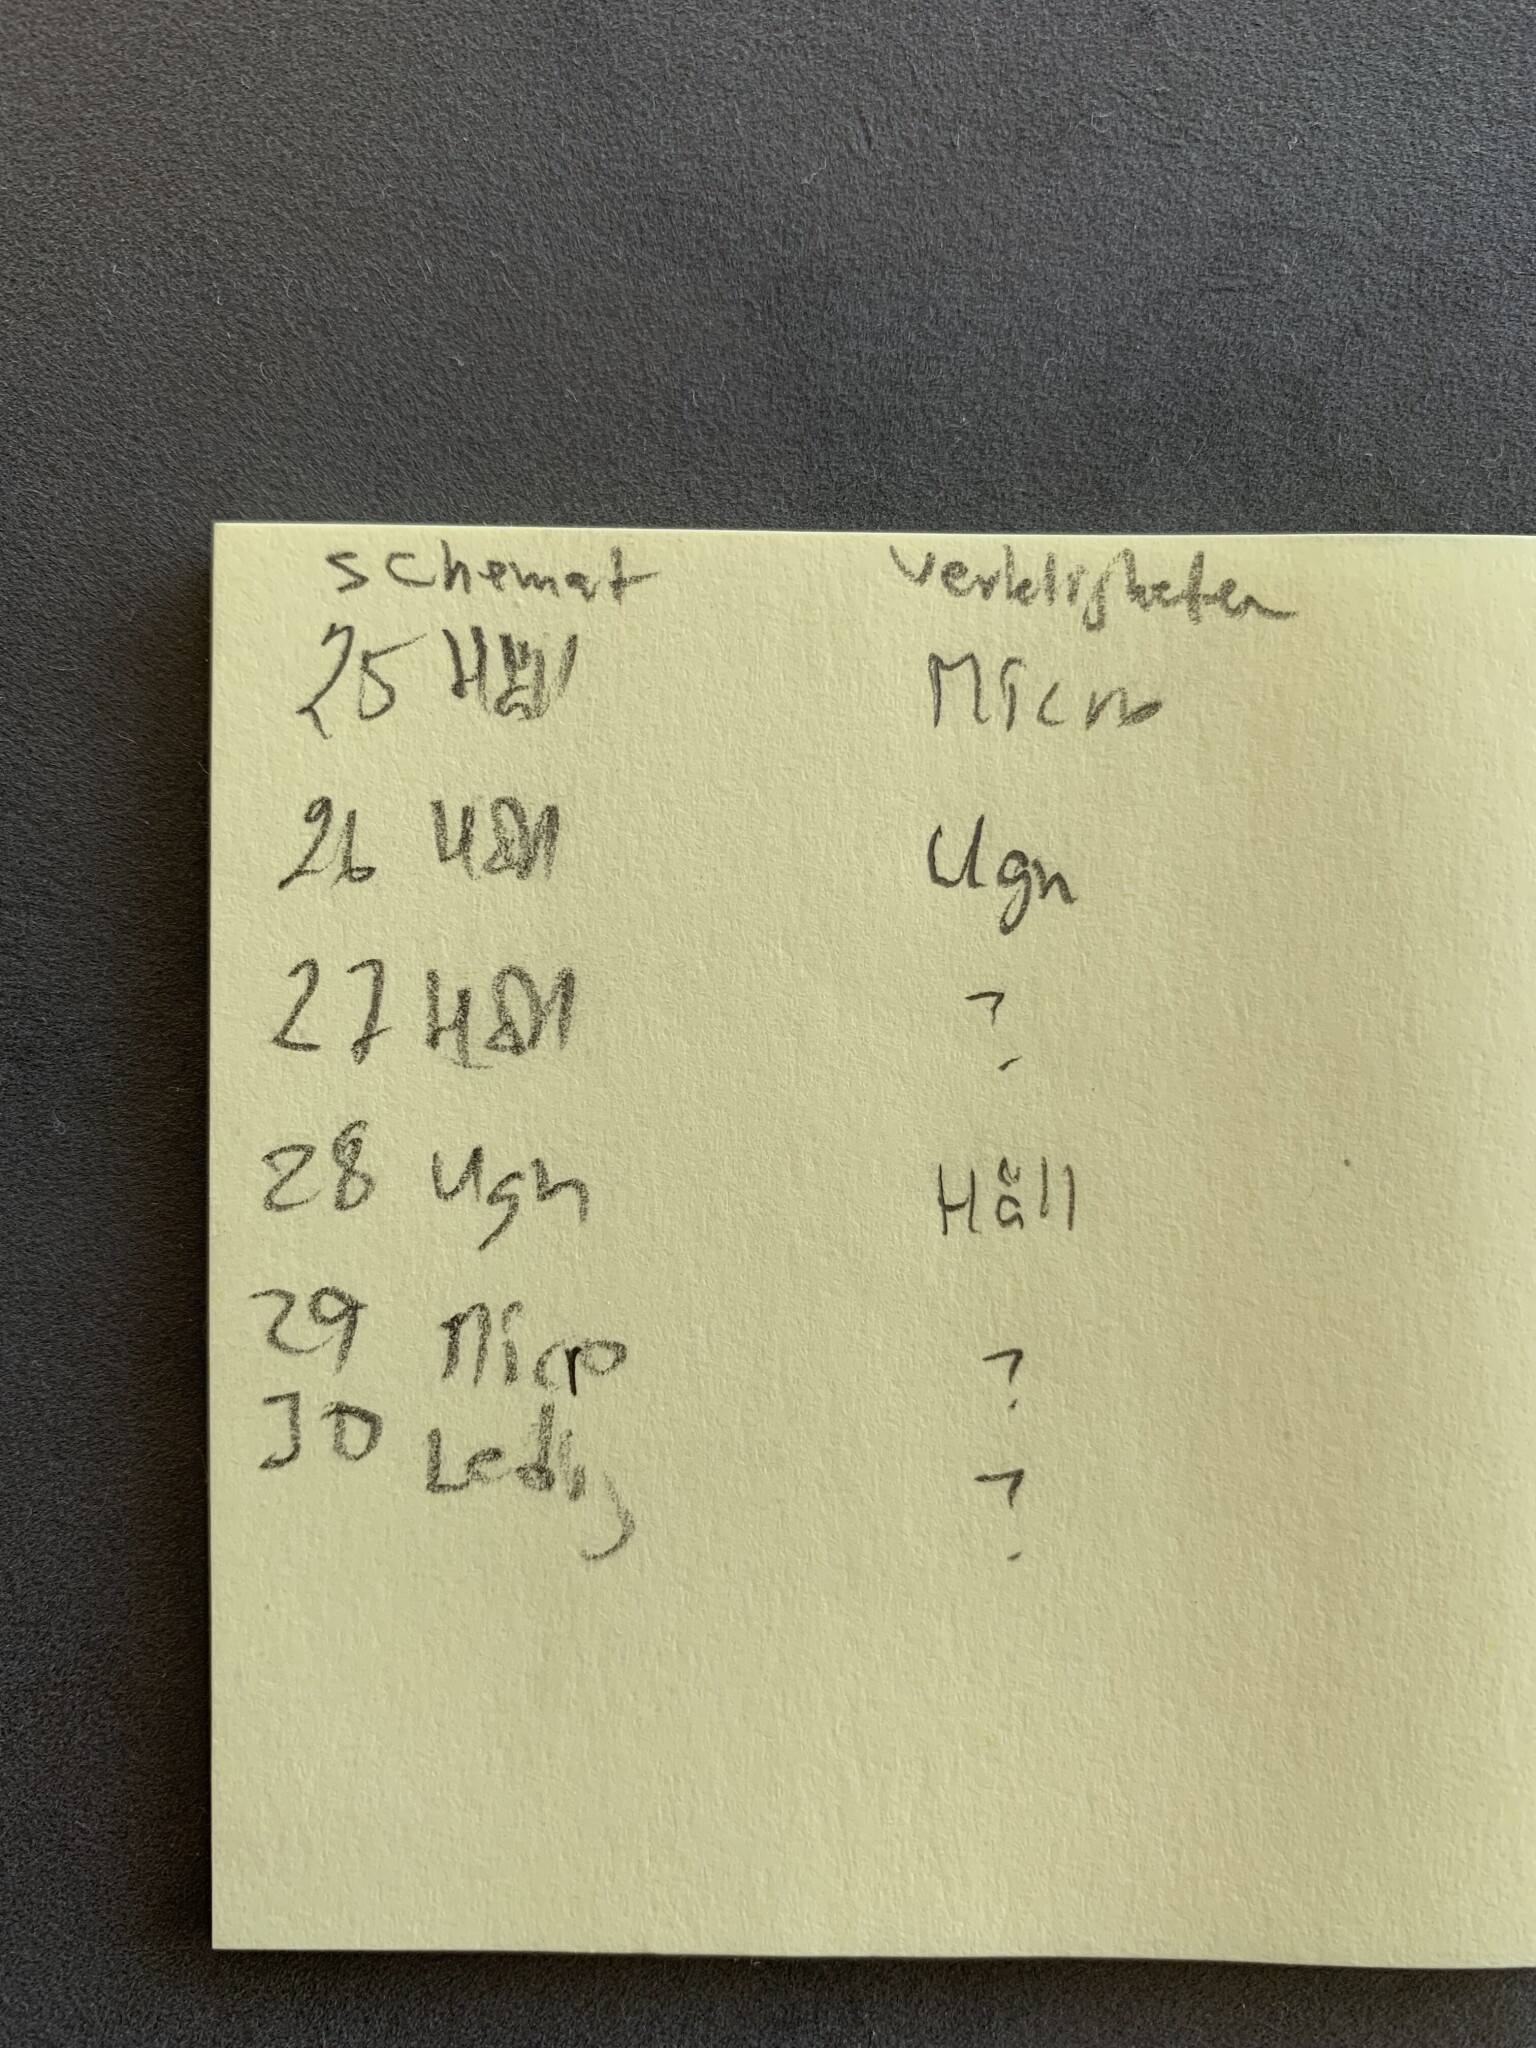 schemat verkligheten
25 Häll Micro
26 Häll Ugn
27 Häll ?
28 Ugn Häll
29 Micro ?
30 Ledig ?